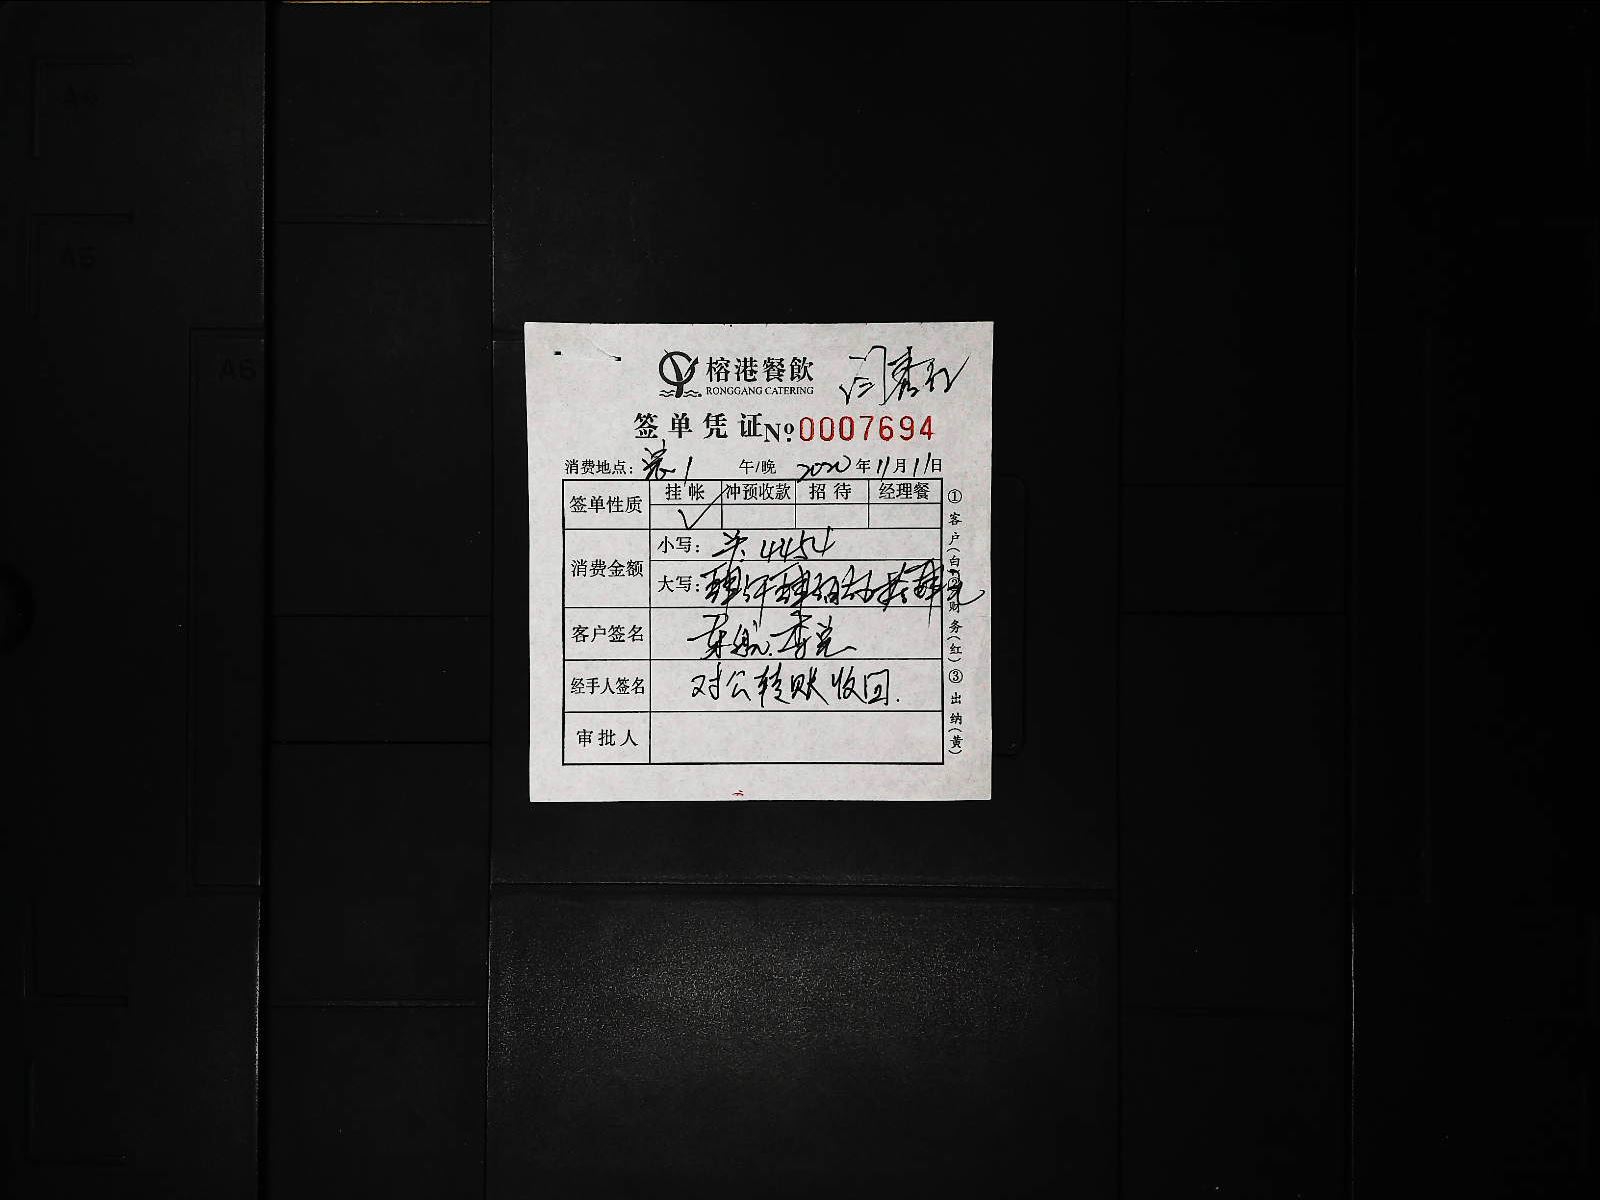 A6
A5
A6
榕港餐飲
RONGGANG CATERING
签单凭证 № 0007694
消费地点： 1 午/晚 2020年11月11日
签单性质 挂帐 冲预收款 招待 经理餐
✓
消费金额 小写： 4454
大写：肆仟肆佰伍拾肆元
客户签名
经手人签名 对公转账收回.
审批人
①客户(白)②财务(红)③出纳(黄)